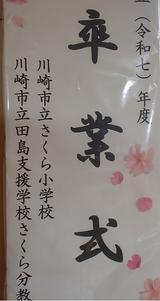 （令和七）年度
卒業式
川崎市立さくら小学校
川崎市立田島支援学校さくら分教